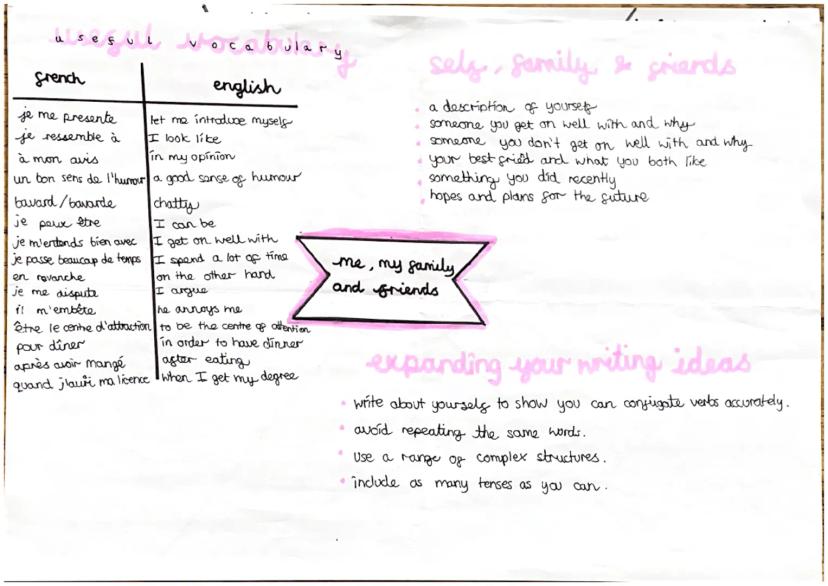 useful vocabulary
french english
je me presente let me introduce myself
je ressemble à I look like
à mon avis in my opinion
un bon sens de l'humour a good sense of humour
bavard/bavarde chatty
je peux être I can be
je m'entends bien avec I get on well with
je passe beaucoup de temps I spend a lot of time
en revanche on the other hand
je me dispute I argue
il m'embête he annoys me
être le centre d'attraction to be the centre of attention
pour dîner in order to have dinner
après avoir mangé after eating
quand j'aurai ma licence when I get my degree
self, family & friends
a description of yourself
someone you get on well with and why
someone you don't get on well with and why
your best friend and what you both like
something you did recently
hopes and plans for the future
me, my family
and friends
expanding your writing ideas
write about yourself to show you can conjugate verbs accurately.
avoid repeating the same words.
use a range of complex structures.
include as many tenses as you can.